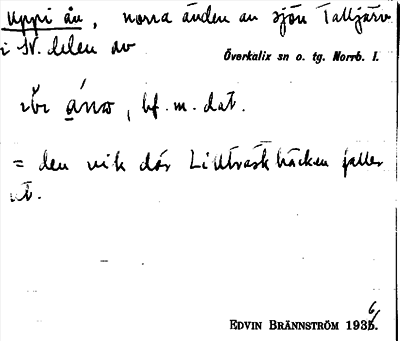 Uppi ån, norra änden av sjön Talljärv
i sv. delen av
Överkalix sn o. tg. Norrb. l.
, bf. m. dat.
= den vik där Lillträskbäcken faller
ut.
EDVIN BRÄNNSTRÖM 1936.